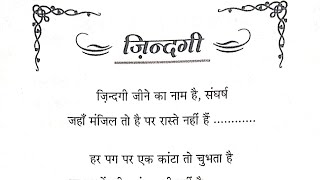 ज़िन्दगी
ज़िन्दगी जीने का नाम है, संघर्ष
जहाँ मंजिल तो है पर रास्ते नहीं हैं ............
हर पग पर एक कांटा तो चुभता है